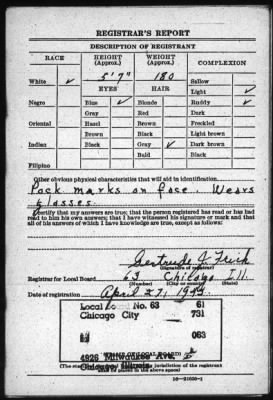 REGISTRAR'S REPORT
DESCRIPTION OF REGISTRANT
RACE HEIGHT (Approx.) WEIGHT (Approx.) COMPLEXION
White ✓ 5' 7" 180 Sallow
EYES HAIR Light ✓
Negro Blue ✓ Blonde Ruddy ✓
Gray Red Dark
Oriental Hazel Brown Freckled
Brown Black Light brown
Indian Black Gray ✓ Dark brown
Bald Black
Filipino
Other obvious physical characteristics that will aid in identification
Pock marks on face. Wears
glasses.
I certify that my answers are true; that the person registered has read or has had
read to him his own answers; that I have witnessed his signature or mark and that
all of his answers of which I have knowledge are true, except as follows:
Gertrude J. Frick
(Signature of registrar)
Registrar for Local Board 63 Chicago Ill.
(Number) (City or county)
Date of registration April 27, 1942
Local No. 63 61
Chicago City 731
063
4926 Milwaukee Ave.
(STAMP OF LOCAL BOARD)
Chicago, Illinois
(The jurisdiction of the registrant
shall be placed in the above space)
16-21630-1